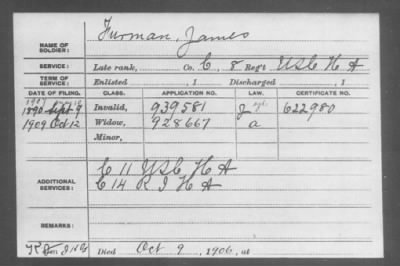 NAME OF SOLDIER: Furman, James
SERVICE: Late rank, Co. C, 8 Reg't U S C H A
TERM OF SERVICE: Enlisted , 1 Discharged , 1
DATE OF FILING. CLASS. APPLICATION NO. LAW. CERTIFICATE NO.
1890 Sept 9 Invalid, 939581 622980
1909 Oct 12 Widow, 928667 a
Minor,
ADDITIONAL SERVICES: C 11 U S C H A
C 14 R I H A
REMARKS:
Died Oct 9, 1906, at